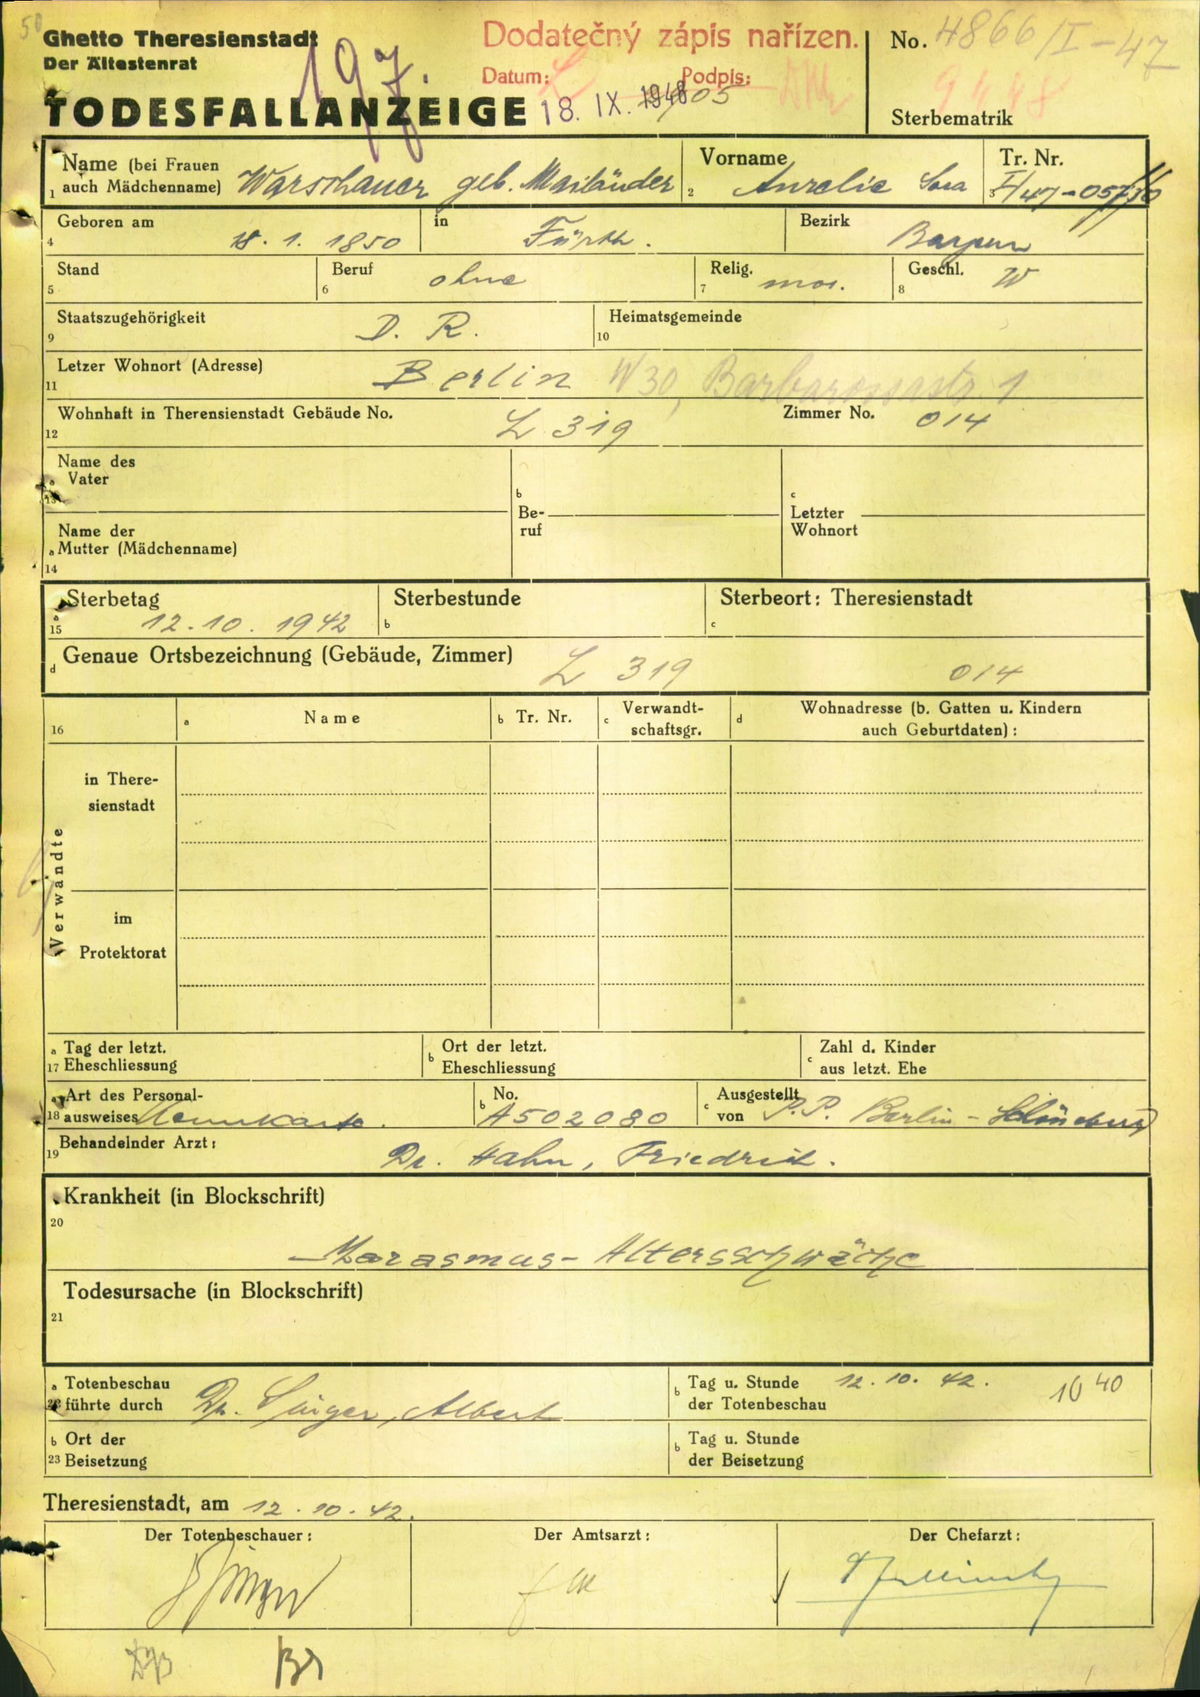 Ghetto Theresienstadt
Der Ältestenrat
TODESFALLANZEIGE
197.
Dodatečný zápis nařízen.
Datum: Podpis:
18. IX. 1948
No. 4866/I-47
Sterbematrik
Name (bei Frauen
1 auch Mädchenname) Warschauer geb. Mailänder
Vorname
2 Aurelie Sara
Tr. Nr.
3 I/47-05730
Geboren am
4 18. 1. 1850
in Fürth.
Bezirk Bayern
Stand
5
Beruf
6 ohne
Relig.
7 mos.
Geschl.
8 W
Staatszugehörigkeit
9 D. R.
Heimatsgemeinde
10
Letzer Wohnort (Adresse)
11 Berlin W30, Barbarossastr. 1
Wohnhaft in Therensienstadt Gebäude No.
12 L 319
Zimmer No. 014
Name des
a Vater
13
b
Be-
ruf
c
Letzter
Wohnort
Name der
a Mutter (Mädchenname)
14
Sterbetag
a
15 12. 10. 1942
Sterbestunde
b
Sterbeort: Theresienstadt
c
d Genaue Ortsbezeichnung (Gebäude, Zimmer) L 319 014
16
a Name
b Tr. Nr.
c Verwandt-
schaftsgr.
d Wohnadresse (b. Gatten u. Kindern
auch Geburtdaten):
Verwandte
in There-
sienstadt
im
Protektorat
a Tag der letzt.
17 Eheschliessung
b Ort der letzt.
Eheschliessung
c Zahl d. Kinder
aus letzt. Ehe
a Art des Personal-
18 ausweises Kennkarte.
b No.
A502080
c Ausgestellt
von P.P. Berlin - Schöneberg
Behandelnder Arzt:
19 Dr. Hahn, Friedrich.
Krankheit (in Blockschrift)
20
Marasmus - Altersschwäche
Todesursache (in Blockschrift)
21
a Totenbeschau
22 führte durch Dr. Singer, Albert
b Tag u. Stunde 12. 10. 42. 10 40
der Totenbeschau
b Ort der
23 Beisetzung
b Tag u. Stunde
der Beisetzung
Theresienstadt, am 12. 10. 42.
Der Totenbeschauer:
Der Amtsarzt:
Der Chefarzt: